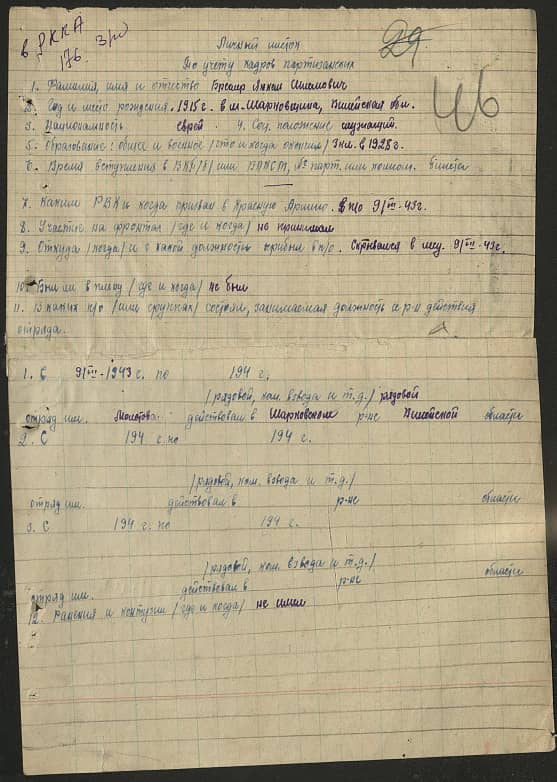 в РККА
176. 3/10
29
46
Личный листок
По учету кадров партизанских
1. Фамилия, имя и отчество Бреслир Янкель Шлемович
2. Год и место рождения. 1915 г. в м. Марковщина, Вилейская обл.
3. Национальность еврей. 4. Соц. положение служащий.
5. Образование: общее и военное /что и когда окончил/ 3 кл. в 1928 г.
6. Время вступления в ВКП/б/ или ВЛКСМ, № парт. или комсом. билета
7. Каким РВК и когда призван в Красную Армию. в п/о 9/III-43г.
8. Участие на фронтах /где и когда/ не принимал
9. Откуда /когда/ и с какой должности прибыл в п/о. Скрывался в лесу. 9/III-43г.
10. Был ли в плену /где и когда/ не был
11. В каких п/о /или группах/ состоял, занимаемая должность и р-н действия
отряда.
1. С 9/III-1943 г. по 194 г.
/рядовой, ком. взвода и т.д./ рядовой
отряд им. Молотова действовал в Марковском р-не Вилейской области
2. С 194 г. по 194 г.
/рядовой, ком. взвода и т.д./
отряд им. действовал в р-не области
3. С 194 г. по 194 г.
/рядовой, ком. взвода и т.д./
отряд им. действовал в р-не области
12. Ранения и контузии /где и когда/ не имел